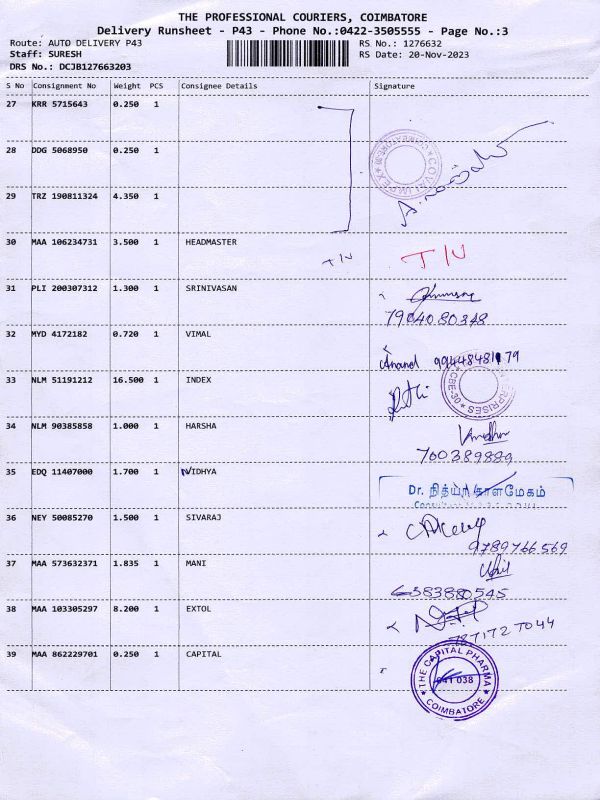 THE PROFESSIONAL COURIERS, COIMBATORE
Delivery Runsheet - P43 - Phone No.:0422-3505555 - Page No.:3
Route: AUTO DELIVERY P43 RS No.: 1276632
Staff: SURESH RS Date: 20-Nov-2023
DRS No.: DCJB127663203
S No Consignment No Weight PCS Consignee Details Signature
27 KRR 5715643 0.250 1
28 DDG 5068950 0.250 1
29 TRZ 190811324 4.350 1
30 MAA 106234731 3.500 1 HEADMASTER
31 PLI 200307312 1.300 1 SRINIVASAN
7904080348
32 MYD 4172182 0.720 1 VIMAL
Anand
33 NLM 51191212 16.500 1 INDEX
34 NLM 90385858 1.000 1 HARSHA
700389889
35 EDQ 11407000 1.700 1 VIDHYA
Dr. நித்யா காளமேகம்
36 NEY 50085270 1.500 1 SIVARAJ
9789766569
37 MAA 573632371 1.835 1 MANI
6383880545
38 MAA 103305297 8.200 1 EXTOL
39 MAA 862229701 0.250 1 CAPITAL
THE CAPITAL PHARMA
641 038
COIMBATORE